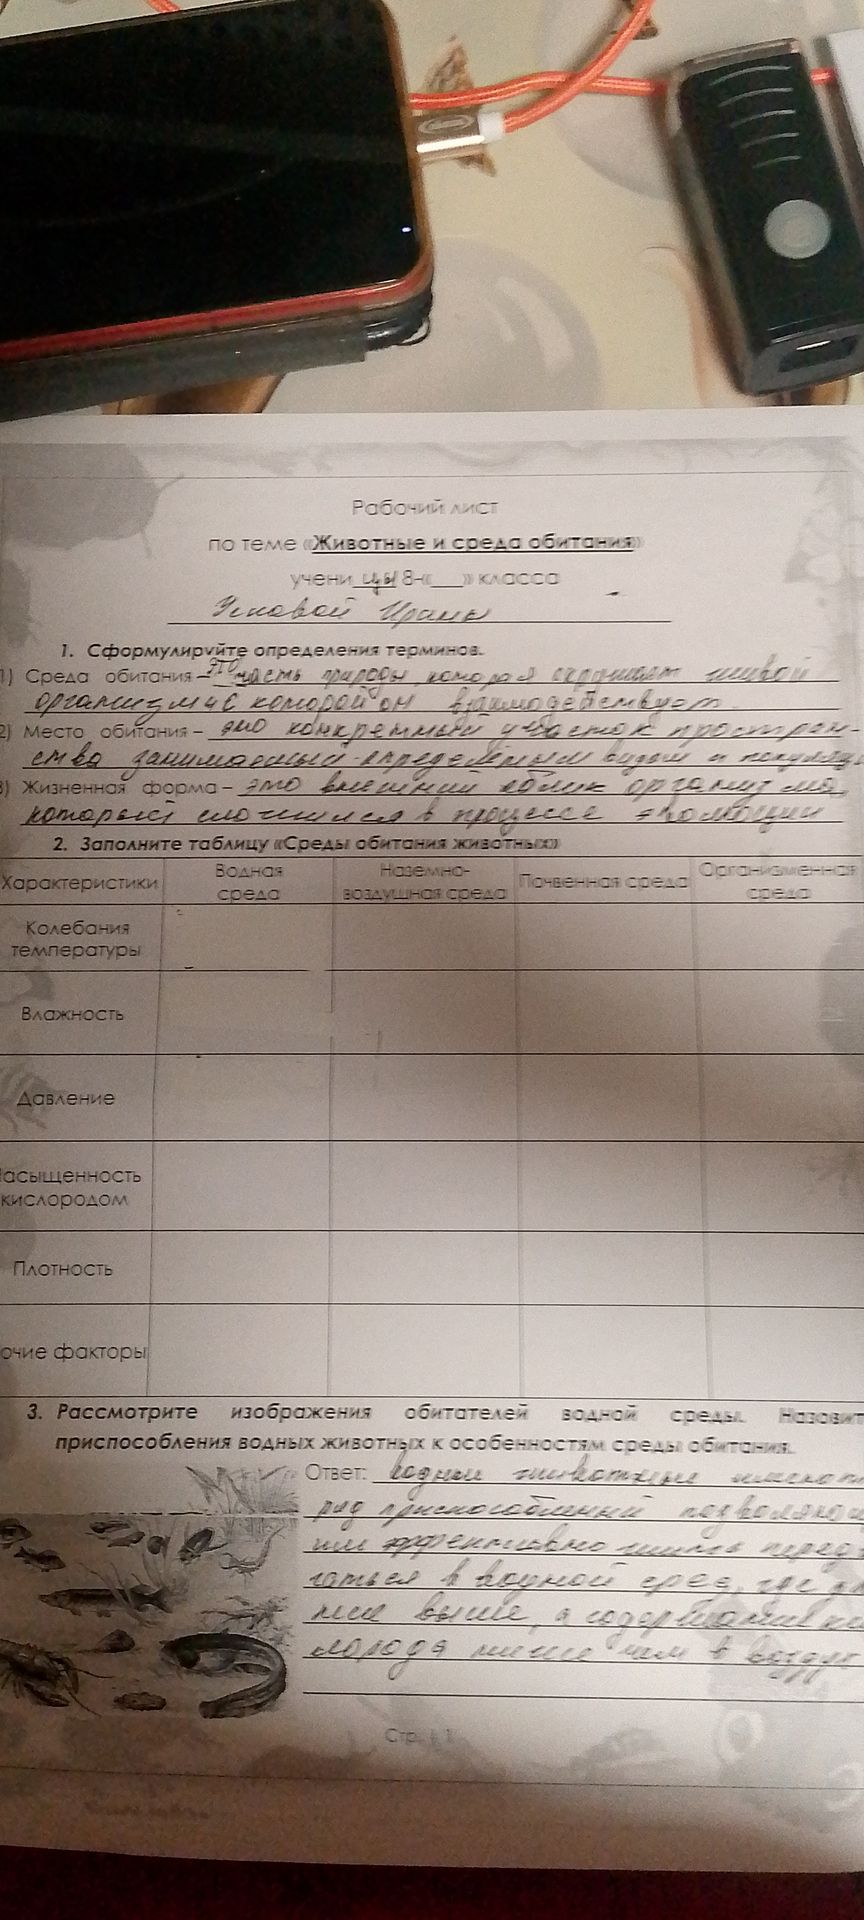 Рабочий лист
по теме «Животные и среда обитания»
учени цы 8-«___» класса
Усковой Ирины
1. Сформулируйте определения терминов.
1) Среда обитания – это часть природы, которая окружает живой
организм и с которой он взаимодействует.
2) Место обитания – это конкретный участок простран-
ства занимаемый определённым видом и популяц
3) Жизненная форма – это внешний облик организма,
который сложился в процессе эволюции
2. Заполните таблицу «Среды обитания животных»
Характеристики Водная среда Наземно-воздушная среда Почвенная среда Организменная среда
Колебания температуры
Влажность
Давление
асыщенность кислородом
Плотность
очие факторы
3. Рассмотрите изображения обитателей водной среды. Назовит
приспособления водных животных к особенностям среды обитания.
Ответ: водные животные имеют
ряд приспособлений позволяющ
им эффективно передв
гаться в водной сред, где да
ние выше, а содержание ки
лорода ниже чем в воздух
Стр. 1